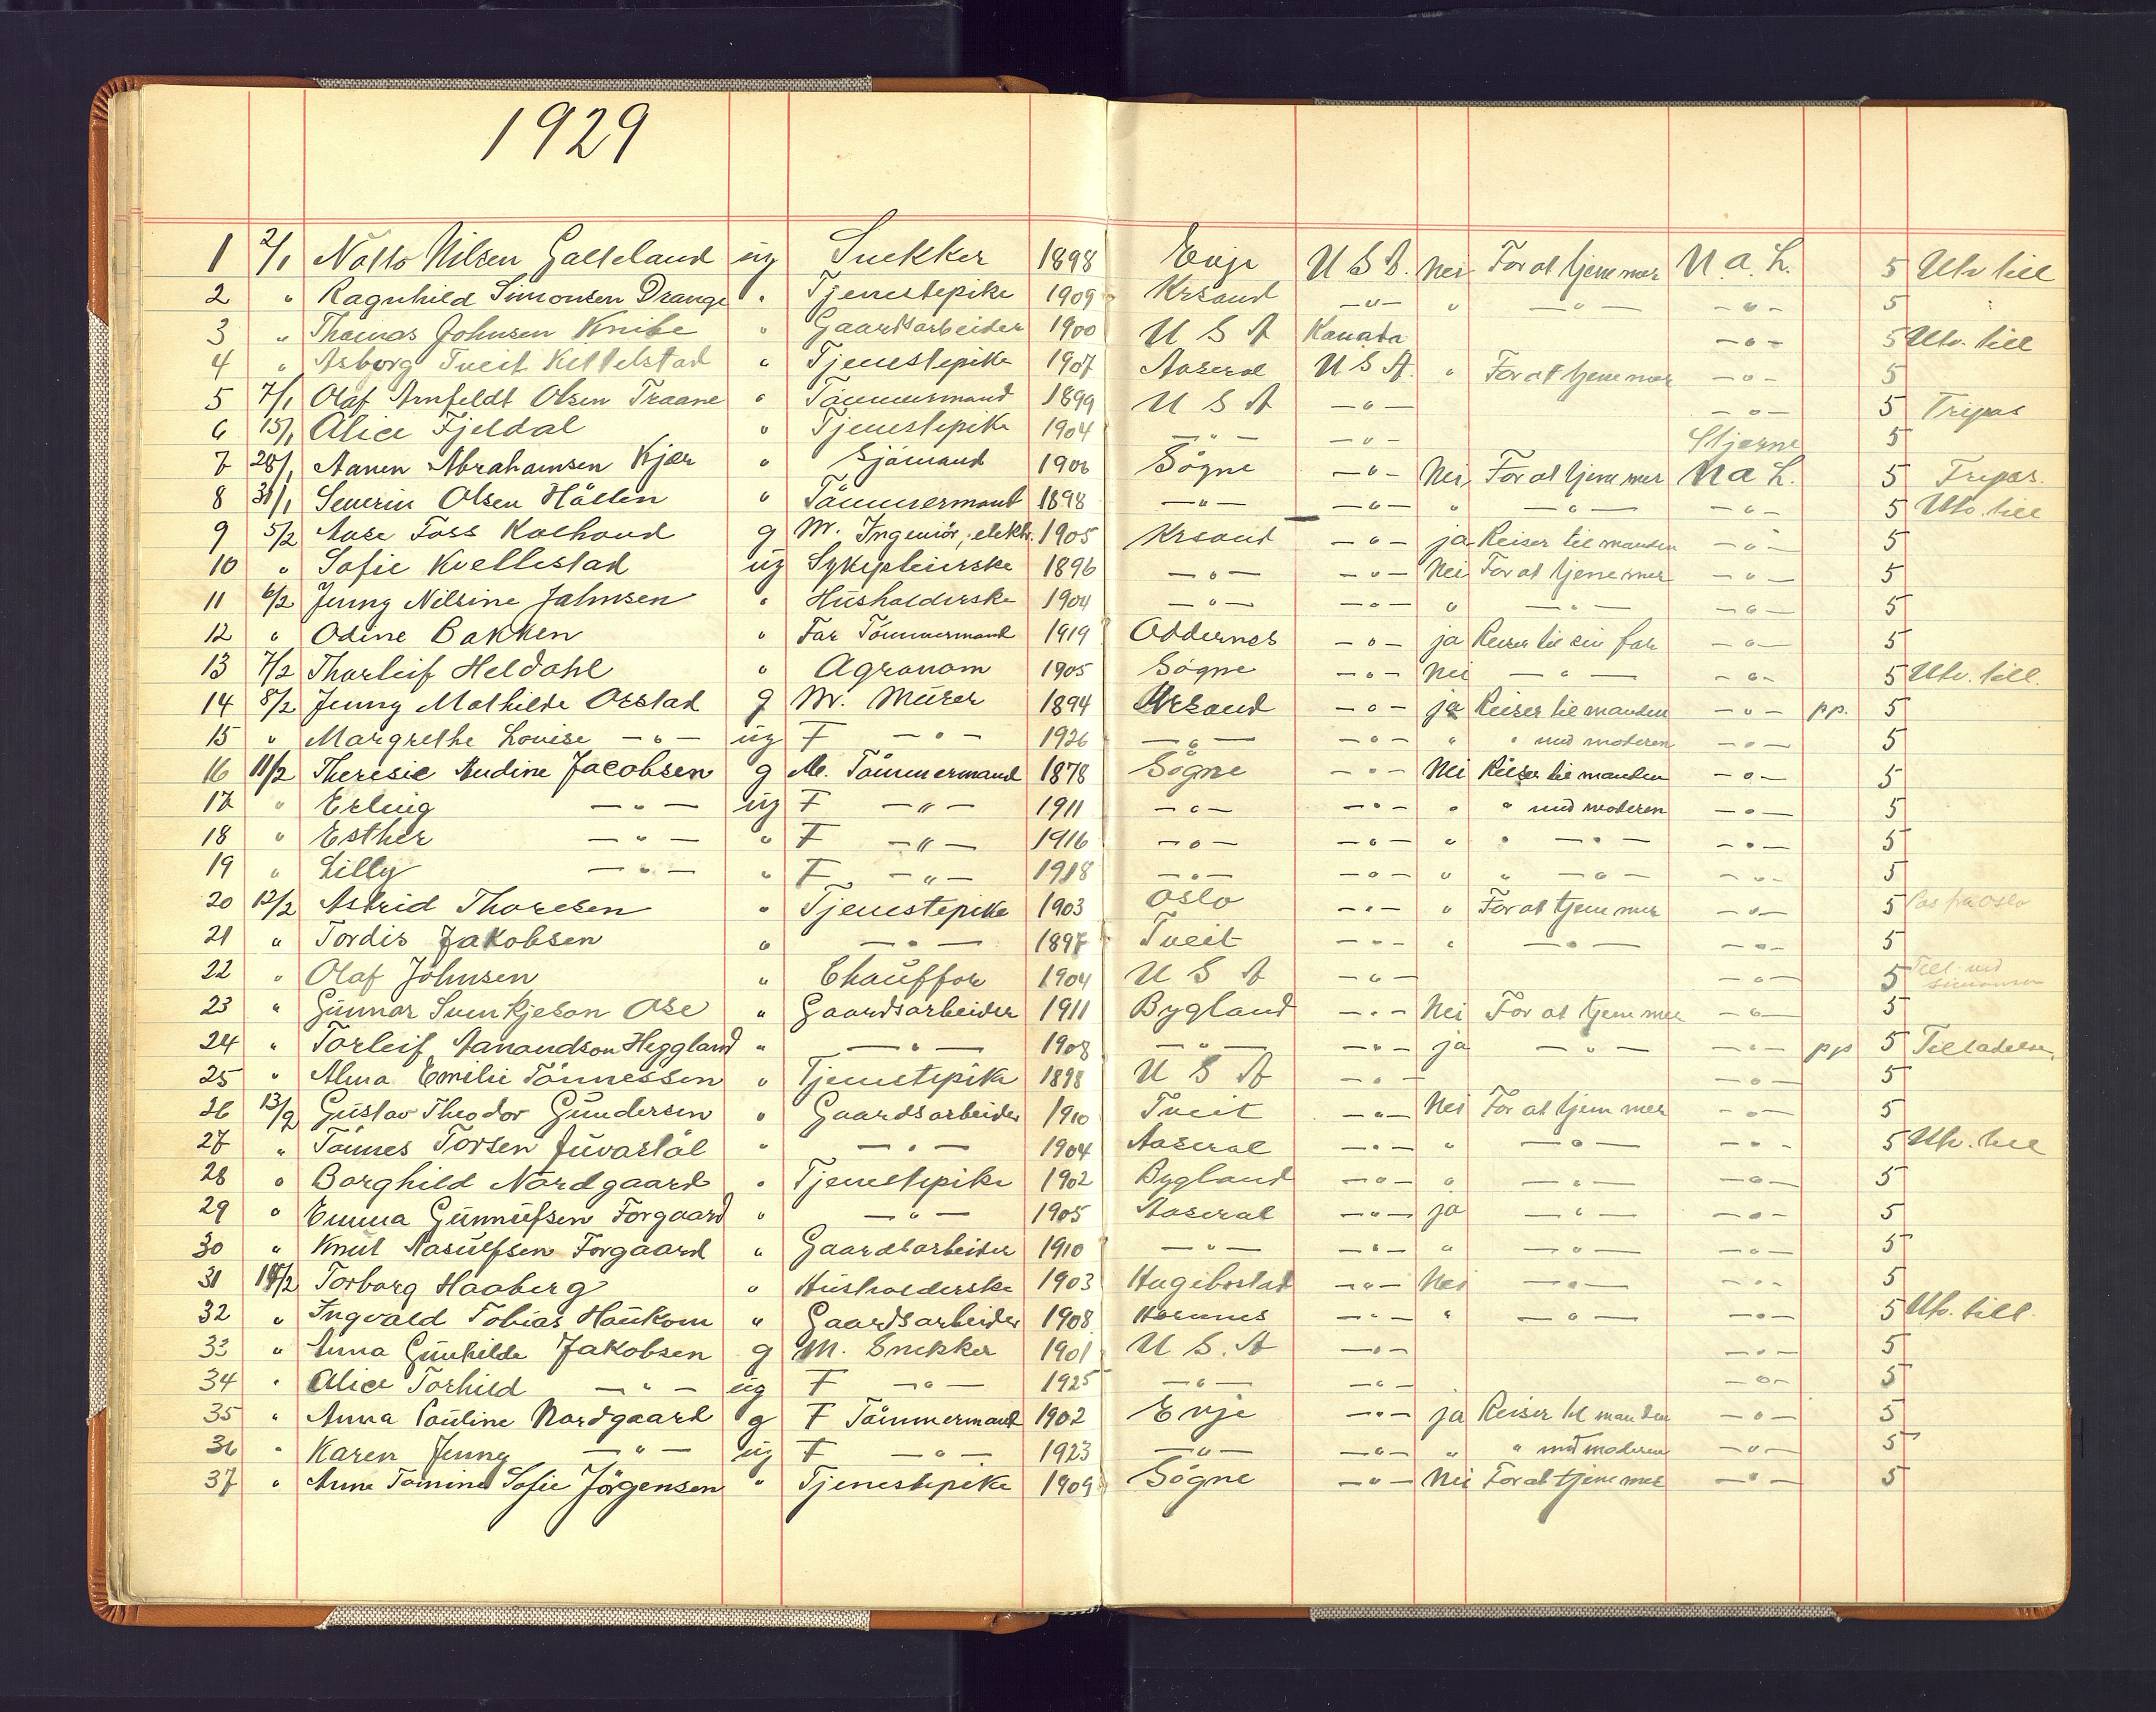 1929
1 2/1 Notto Nilsen Galteland ug Snekker 1898 Evje U S A. Nei For at tjene mer N. a. L. 5 Utv till
2 " Ragnhild Simonsen Drange " Tjenestepike 1909 Krsand — " — " — " — — " — 5 "
3 " Thomas Johnsen Knibe " Gaardsarbeider 1900 U S A Kanada — " — 5 Utv. till
4 " Asborg Tveit Kittelstad " Tjenestepike 1907 Aaseral U S A. " For at tjene mer — " — 5
5 7/1 Olaf Arnfeldt Olsen Traane " Tömmermand 1899 U S A — " — — " — 5 Tripas
6 15/1 Alice Fjeldal " Tjenestepike 1904 — " — — " — Stjerne 5
7 28/1 Aanen Abrahamsen Kjær " Sjömand 1906 Sögne — " — Nei For at tjene mer N a L. 5 Tripas.
8 31/1 Severin Olsen Hållen " Tömmermand 1898 — " — — " — " — " — — " — 5 Utv. till
9 5/2 Aase Foss Kolhoud g M. Ingeniör, elektr. 1905 Krsand — " — ja Reiser til manden — " — 5
10 " Sofie Kvellestad ug Sykepleierske 1896 — " — — " — Nei For at tjene mer — " — 5
11 6/2 Jenny Nilsine Jahnsen " Husholderske 1904 — " — — " — " — " — — " — 5
12 " Odine Bakken " Far Tömmermand 1919 Oddernes — " — ja Reiser til sin far — " — 5
13 7/2 Thorleif Heldahl " Agronom 1905 Sögne — " — Nei — " — — " — 5 Utv. till.
14 8/2 Jenny Mathilde Orstad g M. Murer 1894 Krsand — " — ja Reiser til manden — " — pp. 5
15 " Margrethe Louise — " — ug F — " — 1926 — " — — " — " " med moderen — " — 5
16 11/2 Theresie Andine Jacobsen g M. Tömmermand 1878 Sögne — " — Nei Reiser til manden — " — 5
17 " Erling — " — ug F — " — 1911 — " — — " — " " med moderen — " — 5
18 " Esther — " — " F — " — 1916 — " — — " — " " — " — — " — 5
19 " Lilly — " — " F — " — 1918 — " — — " — " " — " — — " — 5
20 12/2 Astrid Thoresen " Tjenestepike 1903 Oslo — " — " For at tjene mer — " — 5 Pas fra Oslo
21 " Tordis Jakobsen " — " — 1897 Tveit — " — " — " — — " — 5
22 " Olaf Johnsen " Chauffør 1904 U S A — " — — " — 5 Till ved Simonsen
23 " Gunnar Sveinkjeson Ose " Gaardsarbeider 1911 Bygland — " — Nei For at tjene mer — " — 5
24 " Torleif Aanundson Heggland " — " — 1908 — " — — " — ja — " — — " — pp 5 Tilladelse
25 " Alma Emilie Tönnessen " Tjenestepike 1898 U S A — " — — " — 5
26 13/2 Gustav Theodor Gundersen " Gaardsarbeider 1910 Tveit — " — Nei For at tjene mer — " — 5
27 " Tönnes Torsen Juvastöl " — " — 1904 Aaseral — " — " — " — — " — 5 Utv. till
28 " Borghild Nordgaard " Tjenestepike 1902 Bygland — " — " — " — — " — 5
29 " Emma Gunnulfsen Forgaard " — " — 1905 Aaseral — " — ja — " — — " — 5
30 " Knut Aasulfsen Forgaard " Gaardsarbeider 1910 — " — — " — " — " — — " — 5
31 14/2 Torborg Haaberg " Husholderske 1903 Hægebostad — " — Nei — " — — " — 5
32 " Ingvald Tobias Haukom " Gaardsarbeider 1908 Hornnes — " — " — " — — " — 5 Utv. till.
33 " Anna Gunhilde Jakobsen g M. Snekker 1901 U S. A — " — — " — 5
34 " Alice Torhild — " — ug F — " — 1925 — " — — " — — " — 5
35 " Anna Pauline Nordgaard g F Tömmermand 1902 Evje — " — ja Reiser til manden — " — 5
36 " Karen Jenny — " — ug F — " — 1923 — " — — " — " " med moderen — " — 5
37 " Anne Tomine Sofie Jörgensen " Tjenestepike 1909 Sögne — " — Nei For at tjene mer — " — 5